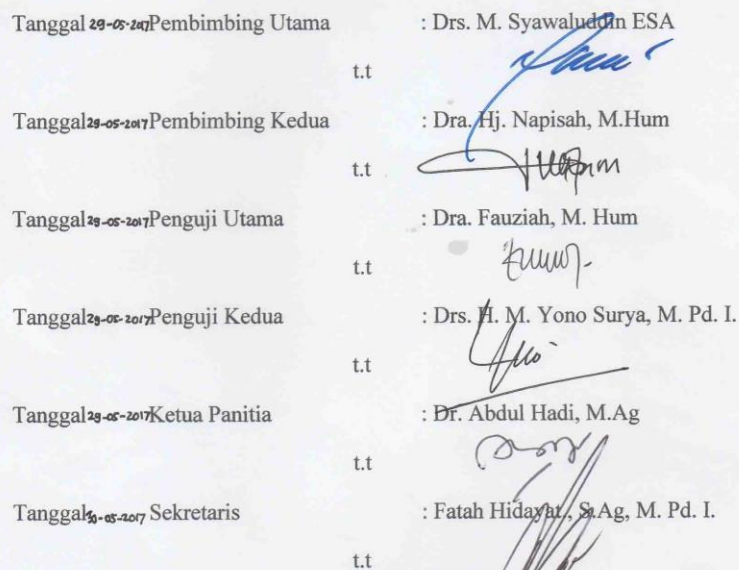 Tanggal 29-05-2017 Pembimbing Utama : Drs. M. Syawaluddin ESA
t.t
Tanggal 29-05-2017 Pembimbing Kedua : Dra. Hj. Napisah, M.Hum
t.t
Tanggal 29-05-2017 Penguji Utama : Dra. Fauziah, M. Hum
t.t
Tanggal 29-05-2017 Penguji Kedua : Drs. H. M. Yono Surya, M. Pd. I.
t.t
Tanggal 29-05-2017 Ketua Panitia : Dr. Abdul Hadi, M.Ag
t.t
Tanggal 30-05-2017 Sekretaris : Fatah Hidayat., S.Ag, M. Pd. I.
t.t